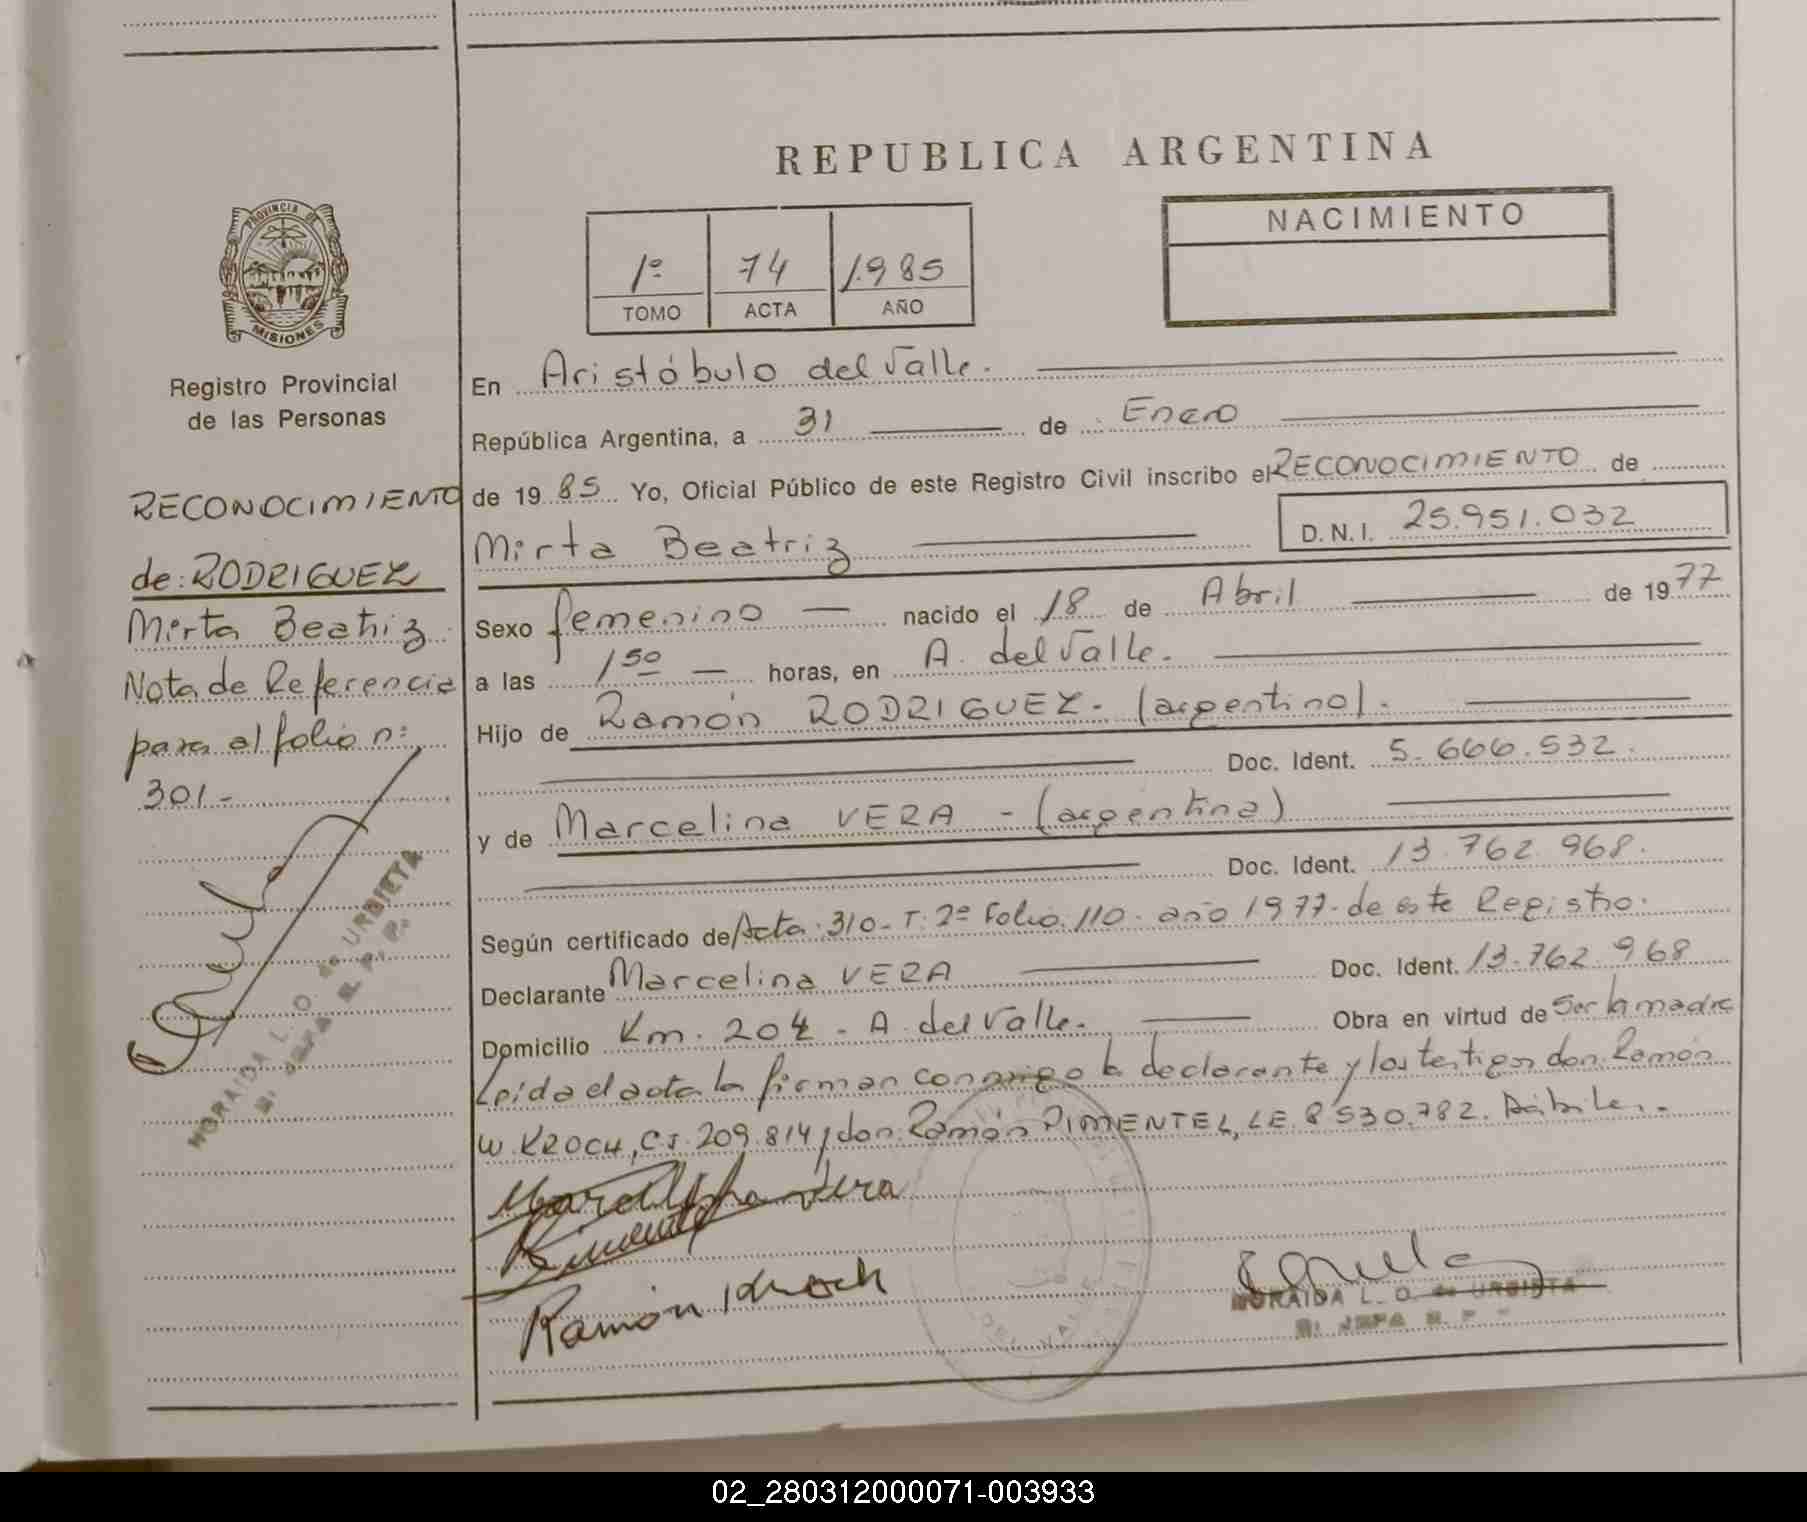 REPUBLICA ARGENTINA
NACIMIENTO
1º 74 1.985
TOMO ACTA AÑO
PROVINCIA DE
MISIONES
Registro Provincial
de las Personas
RECONOCIMIENTO
de: RODRIGUEZ
Mirta Beatriz
Nota de Referencia
para el folio nº:
301-
MORAIDA L. O. de URBIETA
En Aristóbulo del Valle.
República Argentina, a 31 de Enero
de 1985 Yo, Oficial Público de este Registro Civil inscribo el RECONOCIMIENTO de
Mirta Beatriz D.N.I. 25.951.032
Sexo femenino nacido el 18 de Abril de 1977
a las 1 50 horas, en A. del Valle.
Hijo de Ramón RODRIGUEZ. (argentino).
Doc. Ident. 5.666.532.
y de Marcelina VERA - (argentina)
Doc. Ident. 13.762.968.
Según certificado de Acta.310- T. 2º Folio.110. año 1977. de este Registro.
Declarante Marcelina VERA Doc. Ident. 13.762.968
Domicilio Km. 204 - A. del Valle. Obra en virtud de Ser la madre
Leída el acta la firman conmigo la declarante y los testigos don Ramón
W. KROCH, C.I. 209.814 y don Ramón PIMENTEL, L.E. 8.530.782. Hábiles.-
Marcelina Vera
Pimentel
Ramón Kroch
MORAIDA L. O. de URBIETA
DEL VALLE
02_280312000071-003933